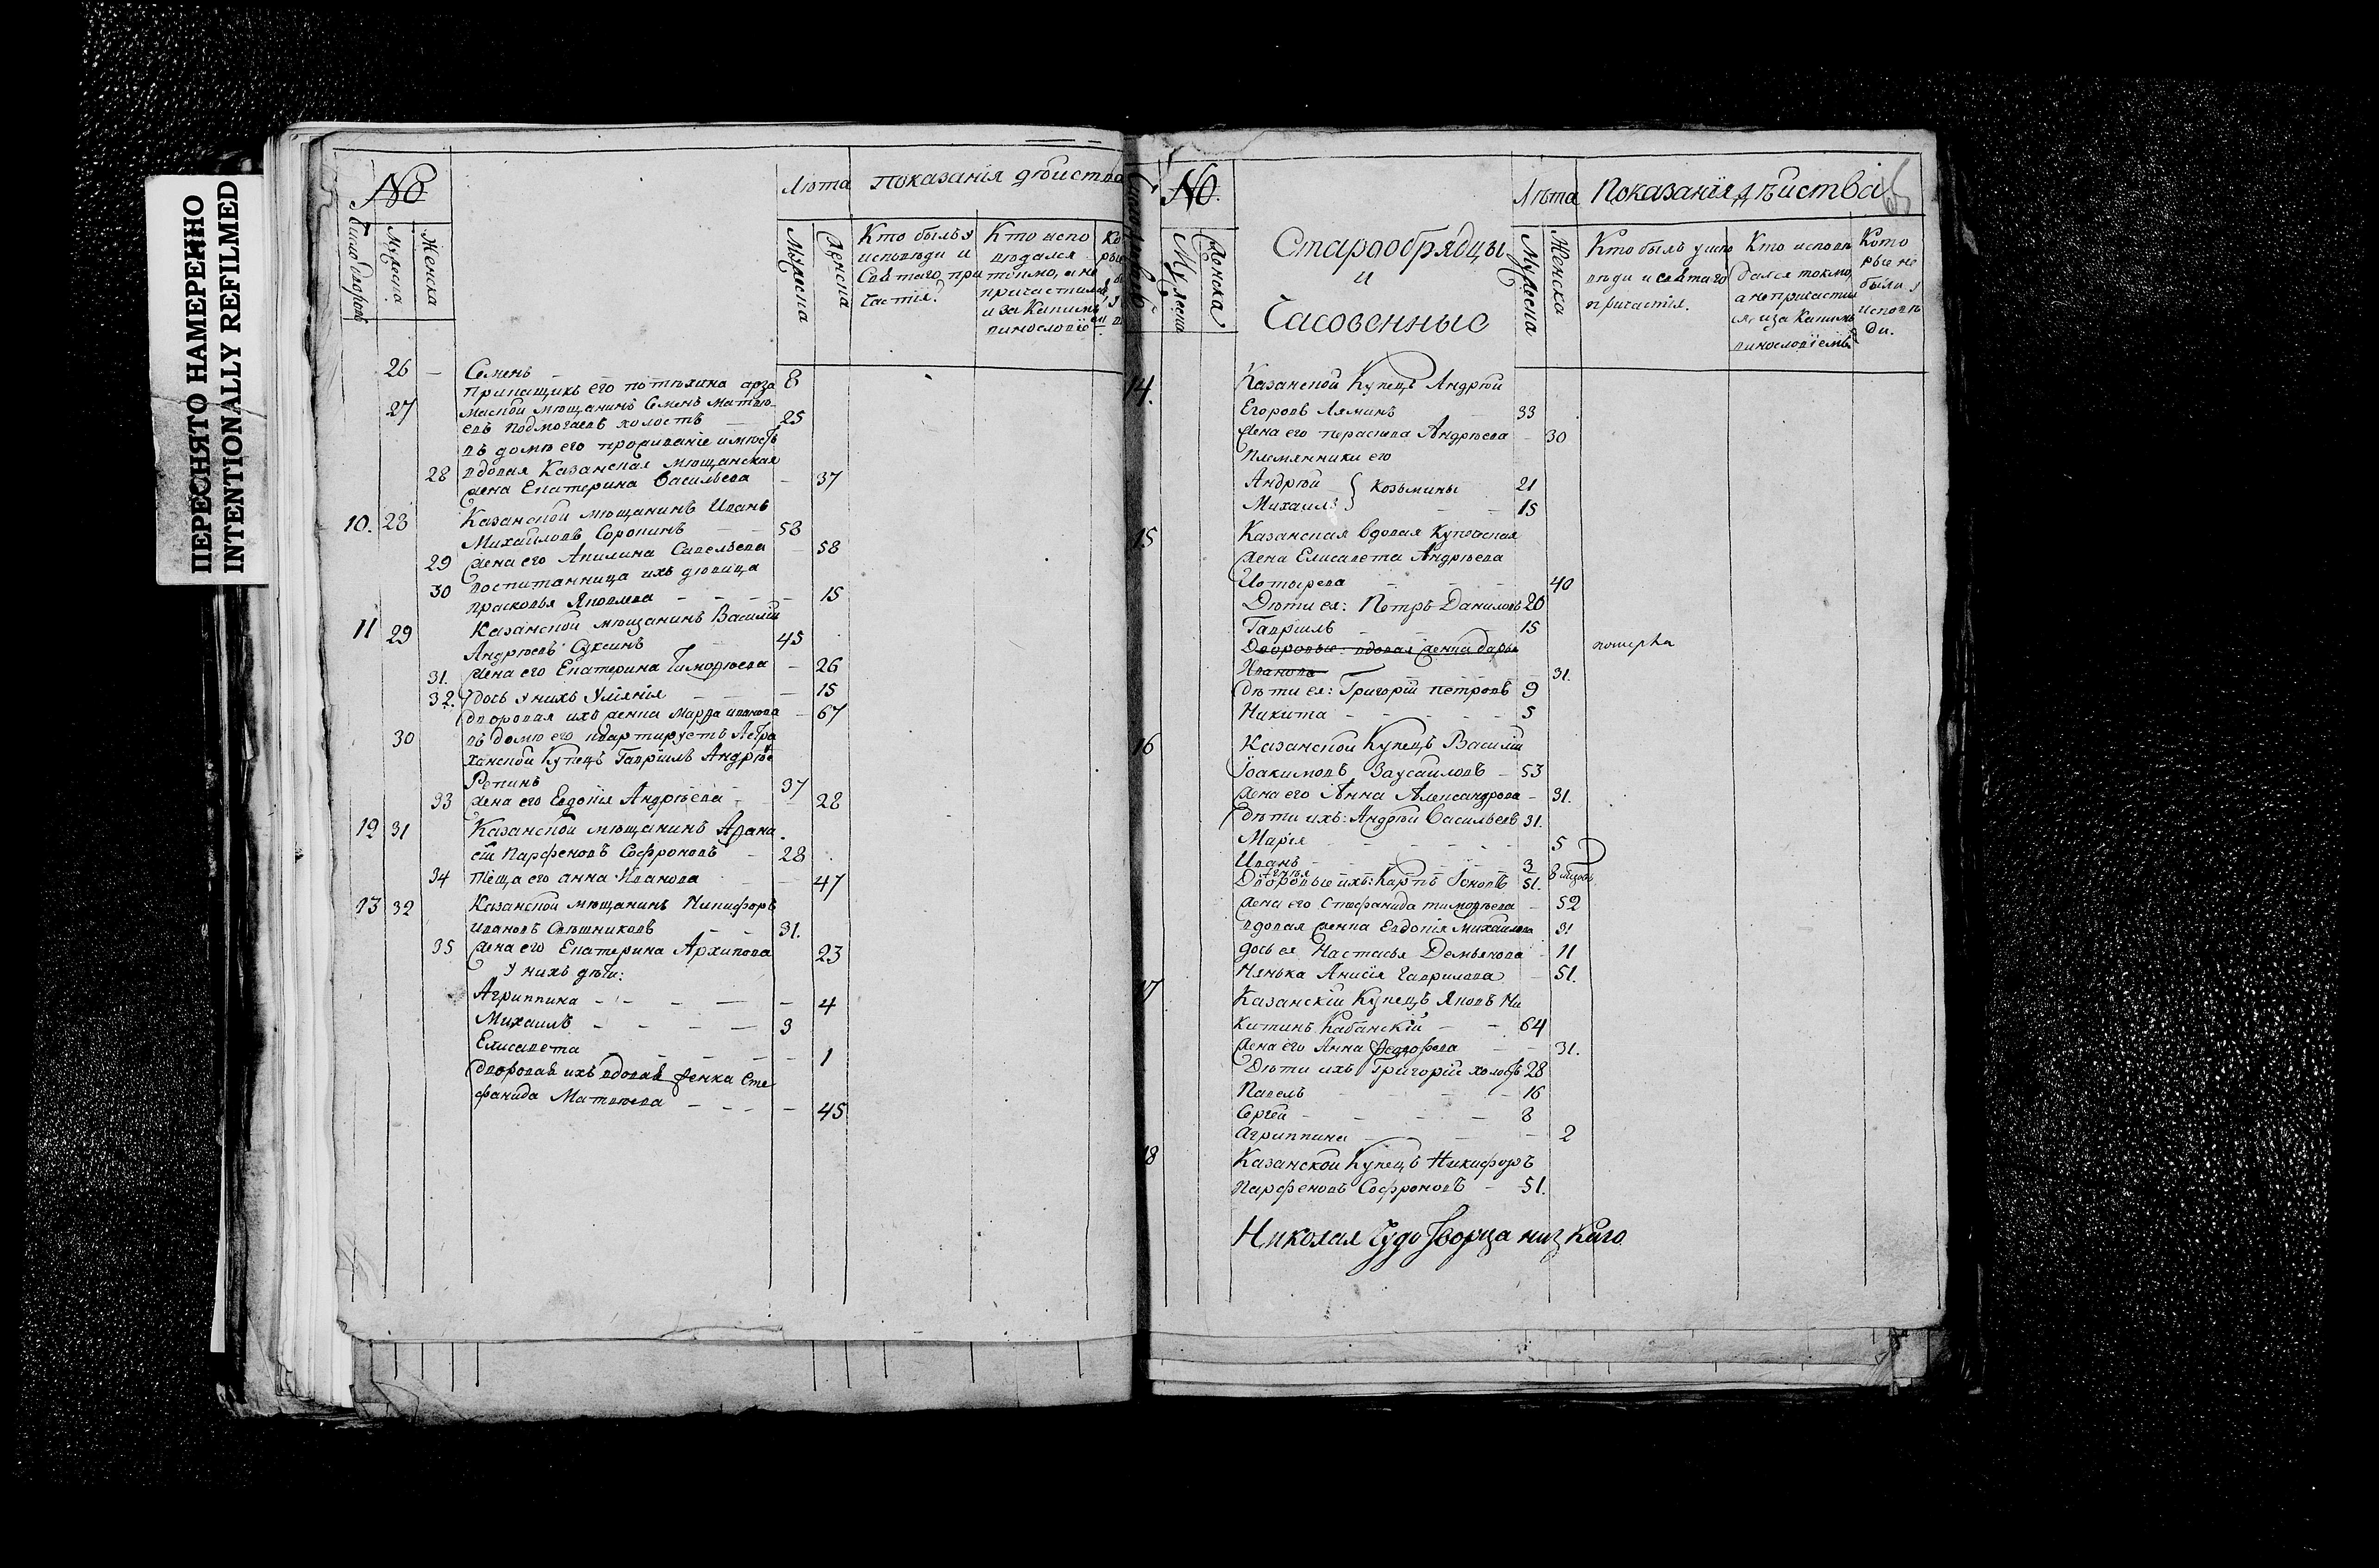 ПЕРЕСНЯТО НАМЕРЕННО
INTENTIONALLY REFILMED
№
Лѣта Показанія дѣйства
Число дворовъ
Мужеска
Женска
Мужеска
Женска
Кто былъ у
исповѣди и
Свѣтаго при
частія.
Кто испо
вѣдался
токмо, а не
причастился
и за какимъ
винословіе
26 — Семенъ — 8
Прикащикъ его Потѣхина арза
27 маской мѣщанинъ Семенъ Матвѣ
евъ Подмогаевъ холостъ — 25
въ домѣ его проживаніе имѣетъ
28 вдовая Казанская мѣщанская
жена Екатерина Васильева — 37
10. 28 Казанской мѣщанинъ Иванъ
Михайловъ Сорокинъ — 58
29 жена его Акилина Савельева — 58
30 воспитанница ихъ дѣвица
Прасковья Яковлева — 15
11 29 Казанской мѣщанинъ Василій
Андрѣевъ Суксинъ — 45
31. жена его Екатерина Тимофѣева — 26
32. дочь у нихъ Уліянія — 15
дворовая ихъ женка Марфа Иванова — 67
30 въ домѣ его квартируетъ Астра
ханской Купецъ Гавріилъ Андрѣе
Репинъ 37
33 жена его Евдокія Андрѣева — 28
12 31 Казанской мѣщанинъ Афана
сій Парфеновъ Софроновъ — 28
34 Теща его Анна Иванова — 47
13 32 Казанской мѣщанинъ Никифоръ
Ивановъ Свѣшниковъ — 31.
35 жена его Екатерина Архипова 23
У нихъ дѣти:
Агриппина — 4
Михаилъ — 3
Елисавета — 1
дворовая ихъ вдовая женка Сте
фанида Матвѣева — 45
№
Старообрядцы
и
Часовенные
Лѣта Показанія дѣйства
Мужеска
Женска
Мужеска
Женска
Кто былъ у испо
вѣди и святаго
причастія.
Кто исповѣ
дался токмо,
а не причастил
ся, и за какимъ
винословіемъ
Кото
рые не
были у
исповѣ
ди.
14. Казанской Купецъ Андрѣй
Егоровъ Ляминъ 33
жена его Параскева Андрѣева — 30
Племянники его
Андрѣй } Козьмины 21
Михаилъ — 15
15 Казанская вдовая Купеческая
жена Елисавета Андрѣева
40
Дѣти ея: Петръ Даниловъ 20
Гавріилъ — 15
Дворовые: вдовая женка Дарья померла
Иванова — 31.
дѣти ея: Григорій Петровъ 9
Никита — 5
16 Казанской Купецъ Василій
Іоакимовъ Заусайловъ — 53
жена его Анна Александрова — 31.
дѣти ихъ: Андрѣй Васильевъ 31.
Марія — 5
Иванъ — 3
8 мцовъ
Дворовые ихъ: Карпъ Іоновъ 51.
жена его Стефанида Тимофѣева — 52
вдовая женка Евдокія Михайлова 31
дочь ея Настасья Демьянова — 11
Нянька Анисія Гаврилова — 51.
17 Казанскій Купецъ Яковъ Ни
китинъ Кабанскій — 64
жена его Анна Федорова — 31.
Дѣти ихъ Григорій холостъ 28
Павелъ — 16
Сергей — 8
Агриппина — 2
18 Казанской Купецъ Никифоръ
Парфеновъ Софроновъ — 51.
Николая Чудотворца низкаго